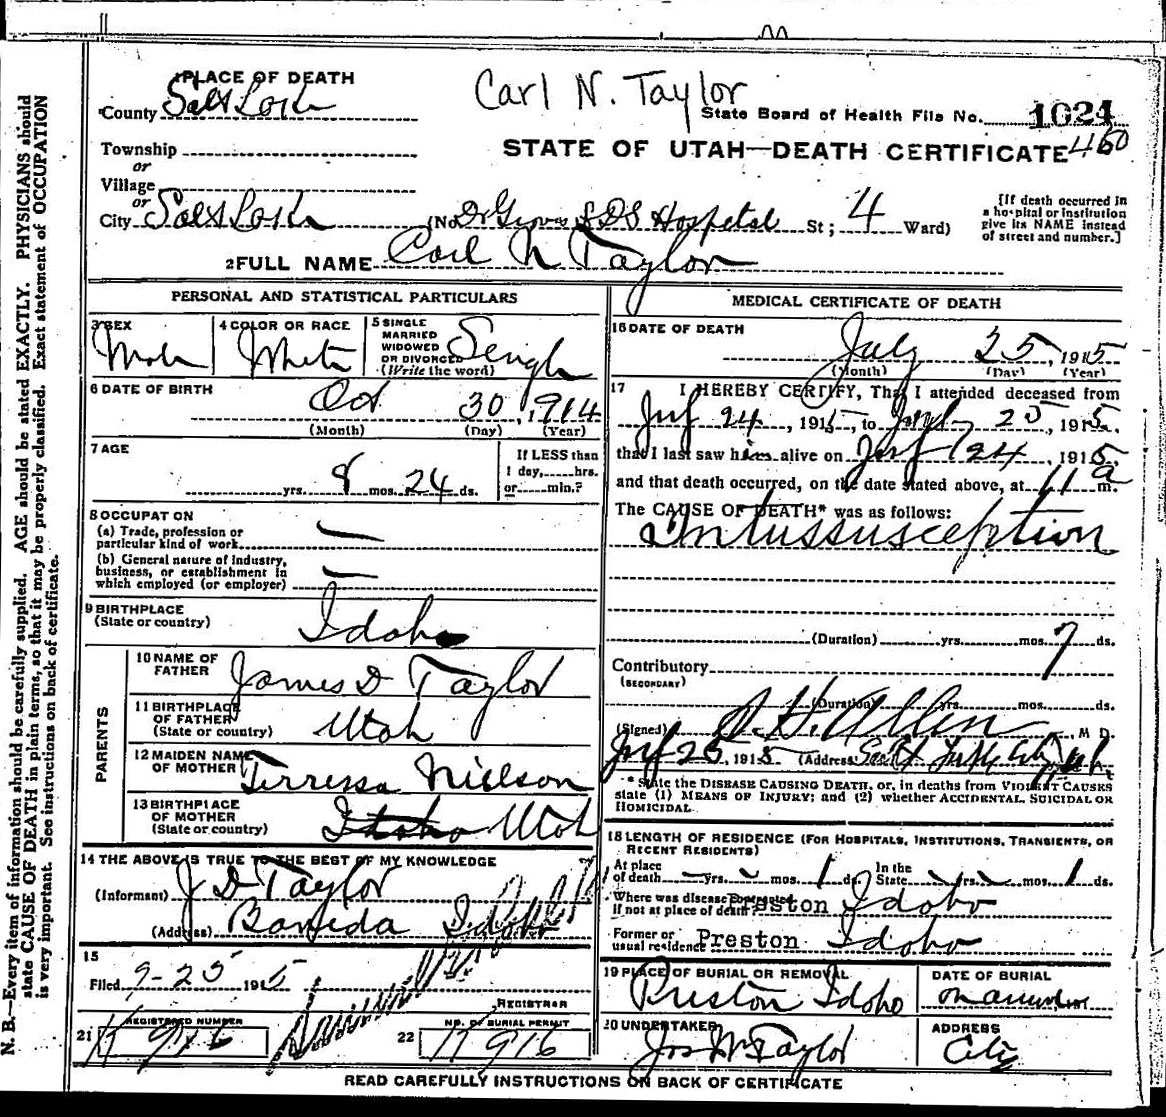 Carl N. Taylor
PLACE OF DEATH
County Salt Lake
State Board of Health File No. 1024
STATE OF UTAH—DEATH CERTIFICATE 460
Township
or
Village
or
City Salt Lake (No. Dr Groves LDS Hospetal St; 4 Ward)
[If death occurred in a hospital or institution give its NAME instead of street and number.]
2 FULL NAME Carl N Taylor
PERSONAL AND STATISTICAL PARTICULARS
3 SEX Male
4 COLOR OR RACE White
5 SINGLE MARRIED WIDOWED OR DIVORCED (Write the word) Single
6 DATE OF BIRTH Oct 30, 1914
(Month) (Day) (Year)
7 AGE
yrs. 8 mos. 24 ds.
If LESS than 1 day, hrs. or min.?
8 OCCUPATION
(a) Trade, profession or particular kind of work —
(b) General nature of industry, business, or establishment in which employed (or employer) —
9 BIRTHPLACE (State or country) Idaho
PARENTS
10 NAME OF FATHER James D Taylor
11 BIRTHPLACE OF FATHER (State or country) Utah
12 MAIDEN NAME OF MOTHER Terressa Nielson
13 BIRTHPLACE OF MOTHER (State or country) Idaho Utah
14 THE ABOVE IS TRUE TO THE BEST OF MY KNOWLEDGE
(Informant) J D Taylor
(Address) Banida Idaho
15
Filed 9-25 1915
REGISTRAR
21 REGISTERED NUMBER K 916
22 NO. OF BURIAL PERMIT K 916
MEDICAL CERTIFICATE OF DEATH
16 DATE OF DEATH
July 25, 1915
(Month) (Day) (Year)
17 I HEREBY CERTIFY, That I attended deceased from
July 24, 1915, to July 25, 1915.
that I last saw him alive on July 24, 1915
and that death occurred, on the date stated above, at 11 a m.
The CAUSE OF DEATH* was as follows:
Intussusception
(Duration) yrs. mos. 7 ds.
Contributory
(SECONDARY)
(Duration) yrs. mos. ds.
(Signed) S. H. Allen, M D.
July 25, 1915 (Address) Salt Lake City Utah
* State the DISEASE CAUSING DEATH, or, in deaths from VIOLENT CAUSES state (1) MEANS OF INJURY; and (2) whether ACCIDENTAL, SUICIDAL OR HOMICIDAL.
18 LENGTH OF RESIDENCE (FOR HOSPITALS, INSTITUTIONS, TRANSIENTS, OR RECENT RESIDENTS)
At place of death — yrs. — mos. 1 ds. In the State — yrs. — mos. 1 ds.
Where was disease contracted if not at place of death? Preston Idaho
Former or usual residence Preston Idaho
19 PLACE OF BURIAL OR REMOVAL Preston Idaho
DATE OF BURIAL on arrival
20 UNDERTAKER Jos Wm Taylor
ADDRESS City
READ CAREFULLY INSTRUCTIONS ON BACK OF CERTIFICATE
N. B.—Every item of information should be carefully supplied. AGE should be stated EXACTLY. PHYSICIANS should
state CAUSE OF DEATH in plain terms, so that it may be properly classified. Exact statement of OCCUPATION
is very important. See instructions on back of certificate.